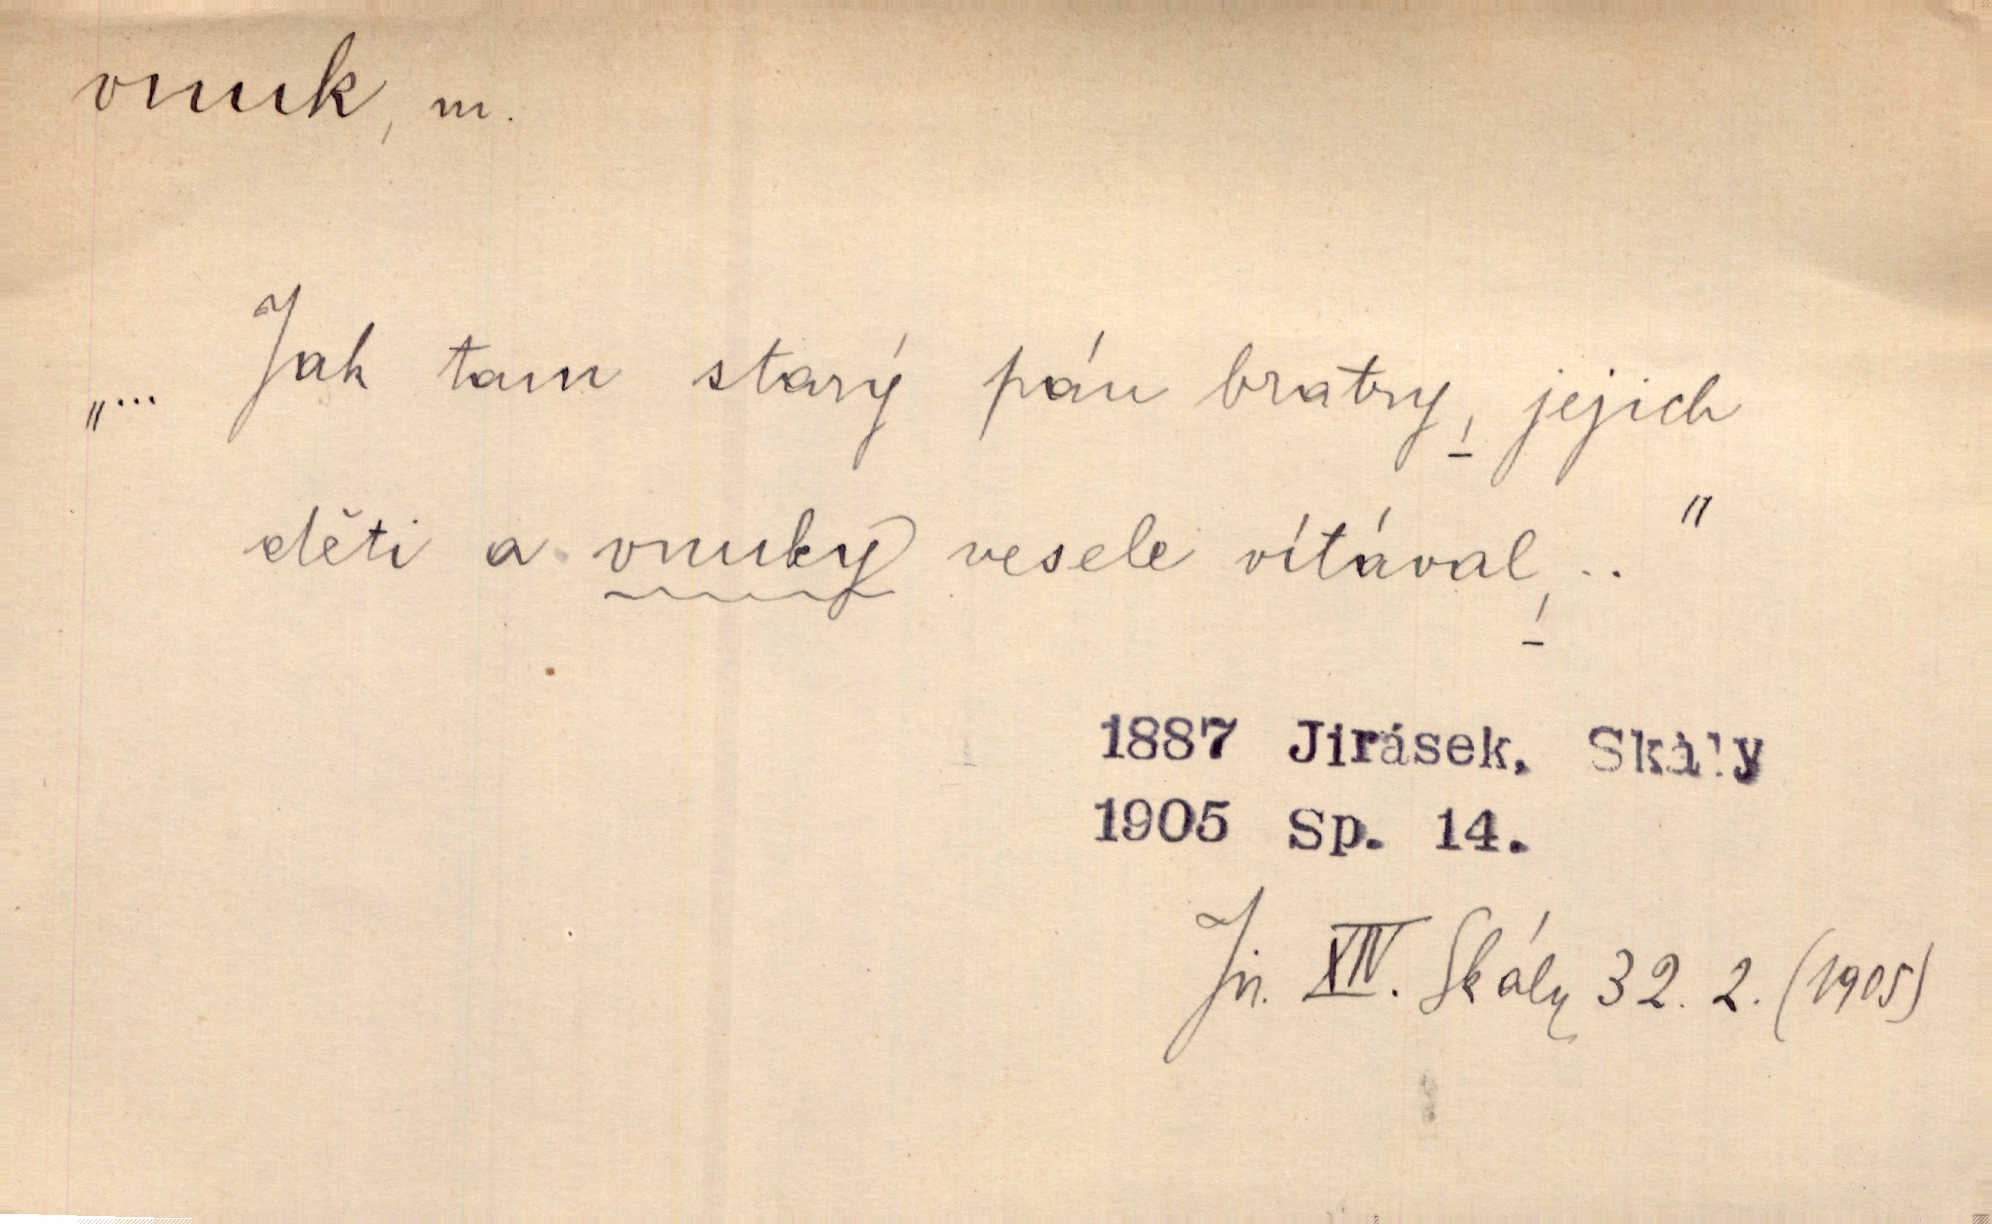 vnuk, m.
„... Jak tam starý pán bratry, jejich
děti a vnuky vesele vítával, .. "
1887 Jirásek, Skály
1905 Sp. 14.
Jir. XIV. Skály 32. 2. (1905)